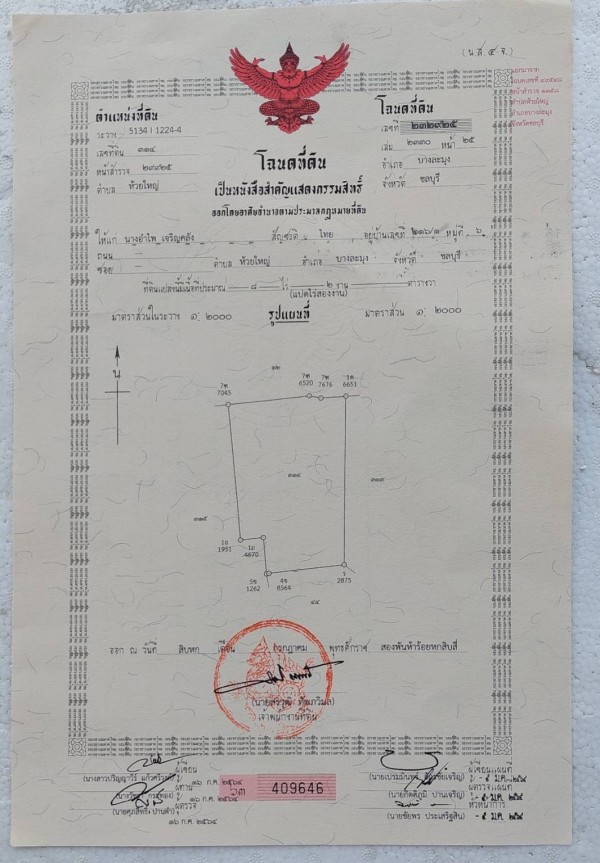 (น.ส. ๔ จ.)
ตำแหน่งที่ดิน
ระวาง 5134 I 1224-4
เลขที่ดิน ๓๑๔
หน้าสำรวจ ๒๓๙๒๕
ตำบล ห้วยใหญ่
โฉนดที่ดิน
เลขที่ ๒๓๒๙๒๕
เล่ม ๒๓๓๐ หน้า ๒๕
อำเภอ บางละมุง
จังหวัด ชลบุรี
โฉนดที่ดิน
เป็นหนังสือสำคัญแสดงกรรมสิทธิ์
ออกโดยอาศัยอำนาจตามประมวลกฎหมายที่ดิน
ให้แก่ นางอำไพ เจริญคลัง สัญชาติ ไทย อยู่บ้านเลขที่ ๒๑๖/๑ หมู่ที่ ๖
ถนน
ซอย ตำบล ห้วยใหญ่ อำเภอ บางละมุง จังหวัด ชลบุรี
ที่ดินแปลงนี้มีเนื้อที่ประมาณ ๘ ไร่ ๒ งาน ตารางวา
(แปดไร่สองงาน)
มาตราส่วนในระวาง ๑: ๒๐๐๐ รูปแผนที่ มาตราส่วน ๑: ๒๐๐๐
น
7045
6520
7676
6651
๓๑๔
๓๑๕
1951
4670
1262
8564
2875
๔๔
ออก ณ วันที่ สิบหก เดือน กรกฎาคม พุทธศักราช สองพันห้าร้อยหกสิบสี่
เจ้าพนักงานที่ดิน
ผู้เขียน
๑๖ ก.ค. ๒๕๖๔
ผู้ทาน
๑๖ ก.ค. ๒๕๖๔
ผู้ตรวจ
๑๖ ก.ค. ๒๕๖๔
409646
ผู้เขียนแผนที่
(นายกิตติภูมิ ปานเจริญ)
ผู้ตรวจแผนที่
หัวหน้าการ
(นายชัยพร ประเสริฐสิน)